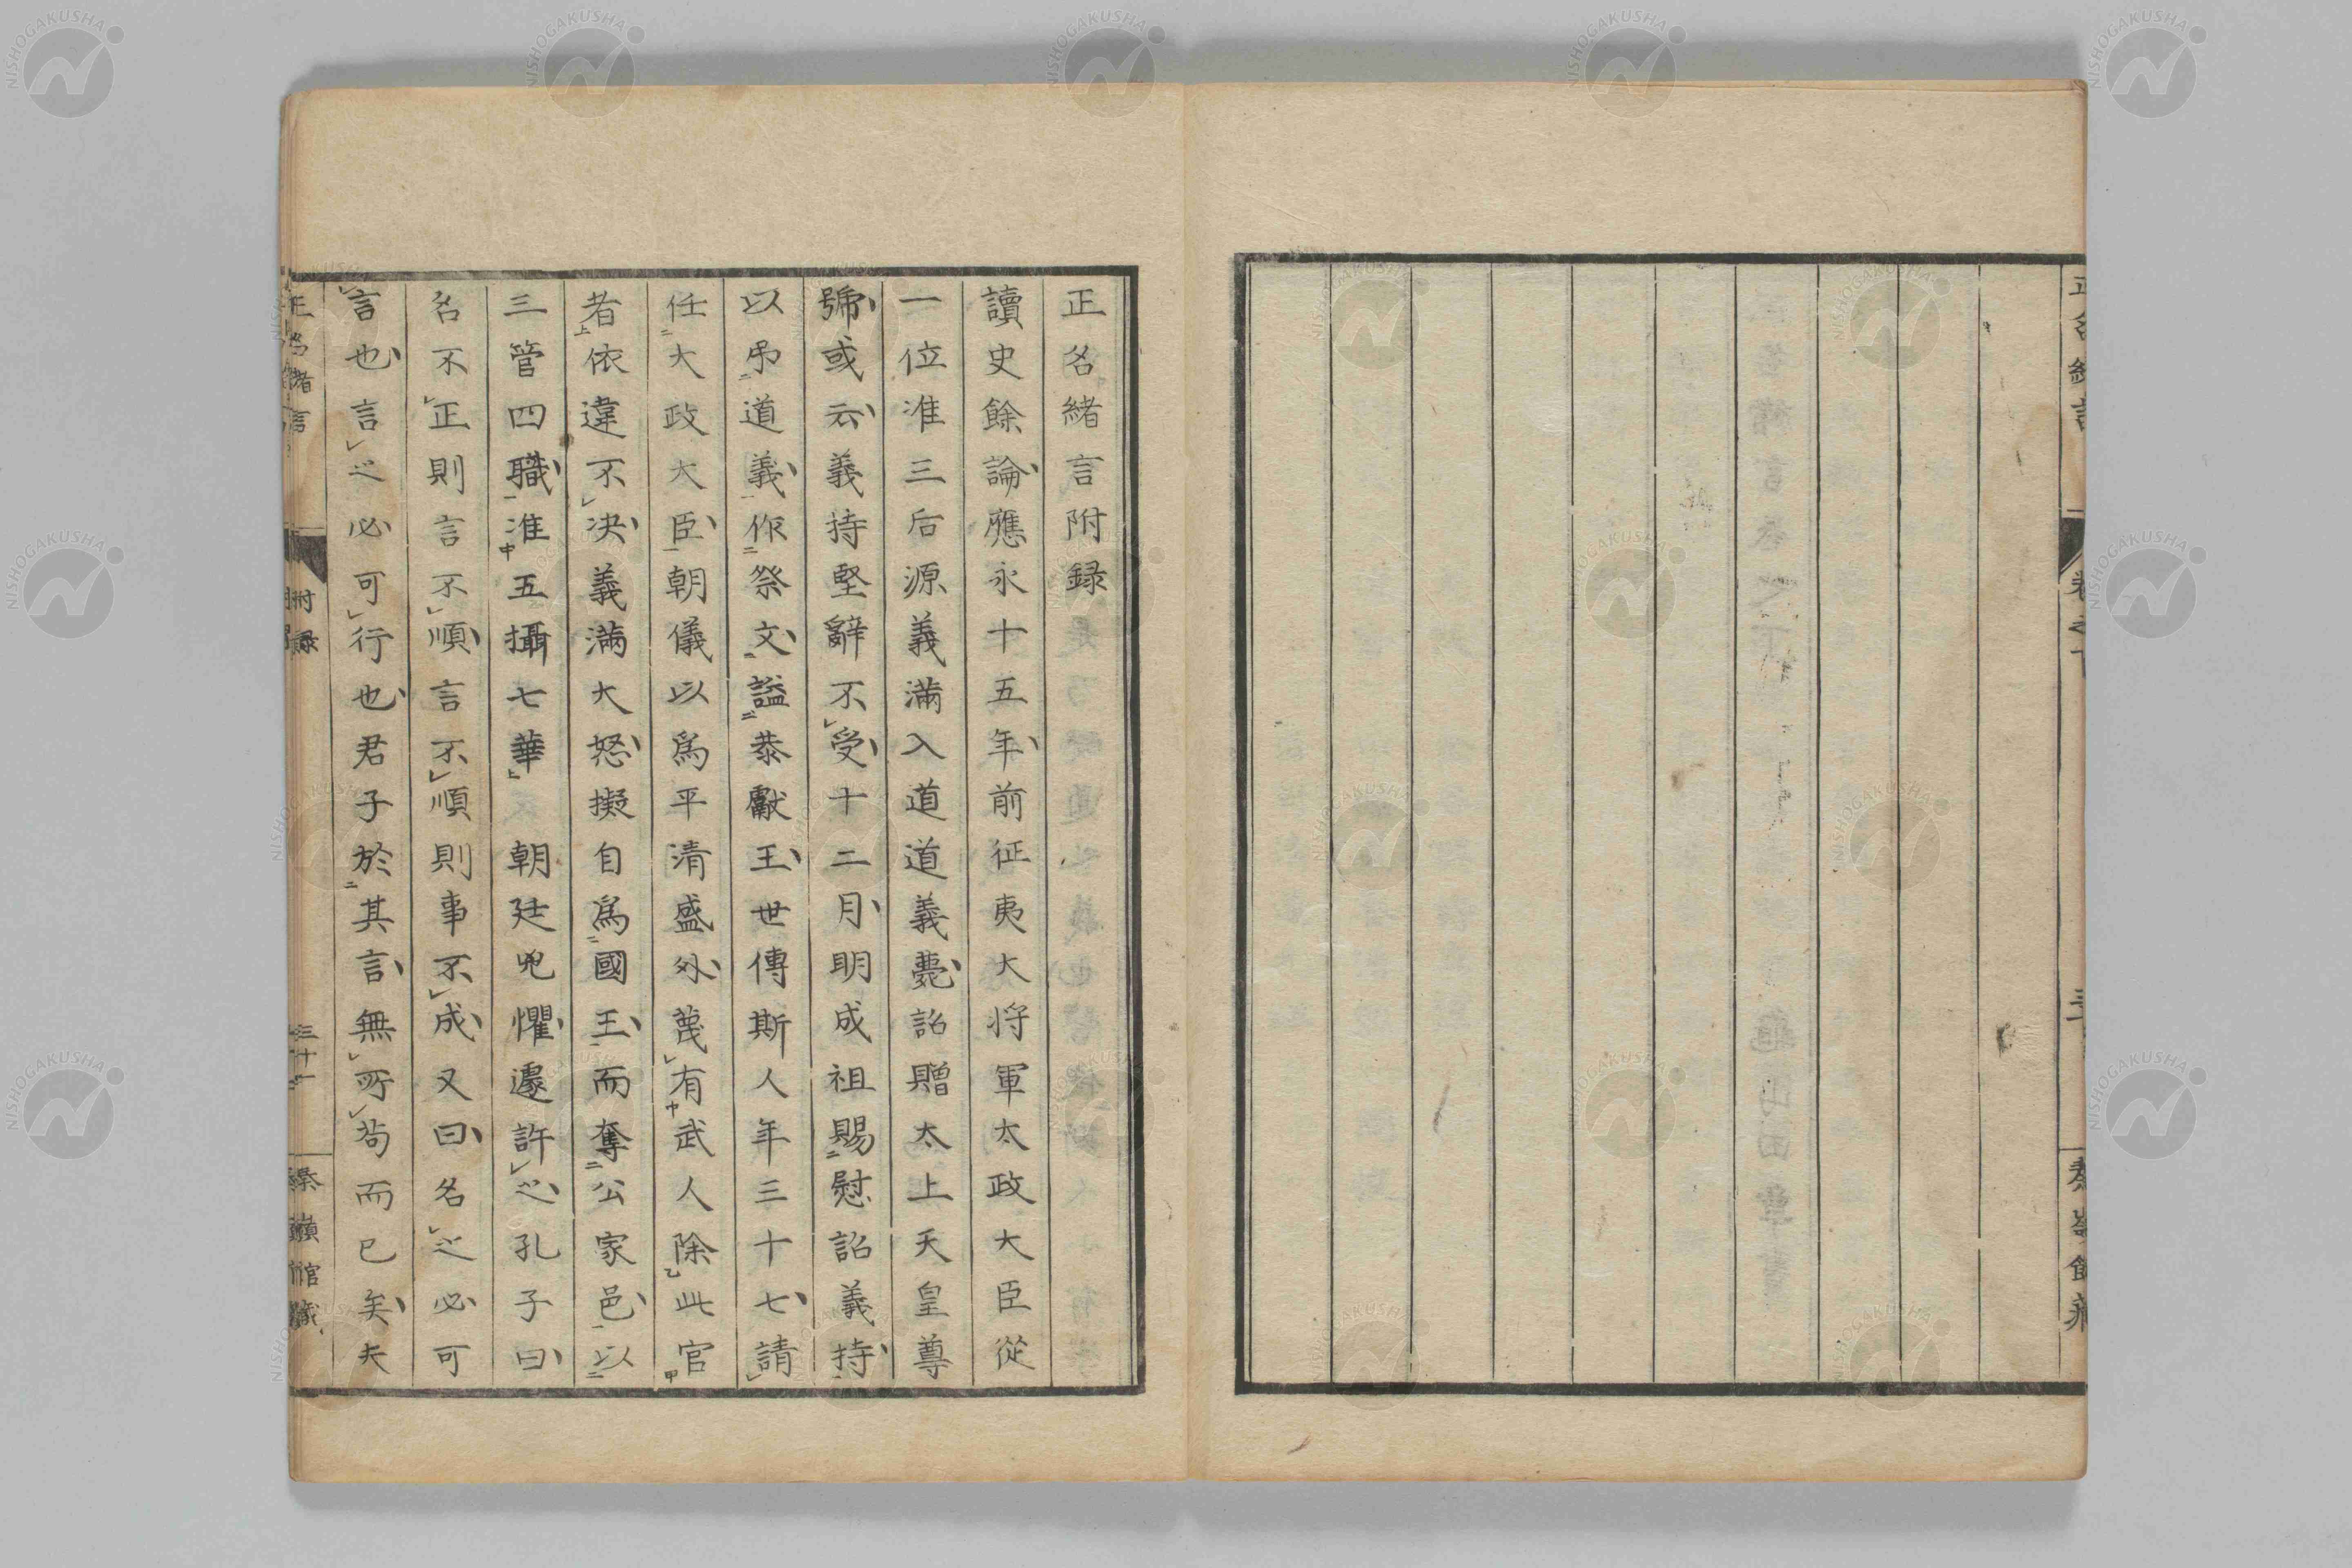 正名緒言附録
讀史餘論應永十五年前征夷大将軍太政大臣從
一位准三后源義滿入道道義薨詔贈太上天皇尊
號或云義持堅辭不受十二月明成祖賜慰詔義持
以弔道義作祭文謚恭獻王世傳斯人年三十七請
任大政大臣朝儀以爲平清盛外蔑有武人除此官
者依違不決義滿大怒擬自爲國王而奪公家邑以
三管四職准五攝七華朝廷兇懼遽許之孔子曰
名不正則言不順言不順則事不成又曰名之必可
言也言之必可行也君子於其言無所苟而已矣夫
附録
三十一
NISHOGAKUSHA